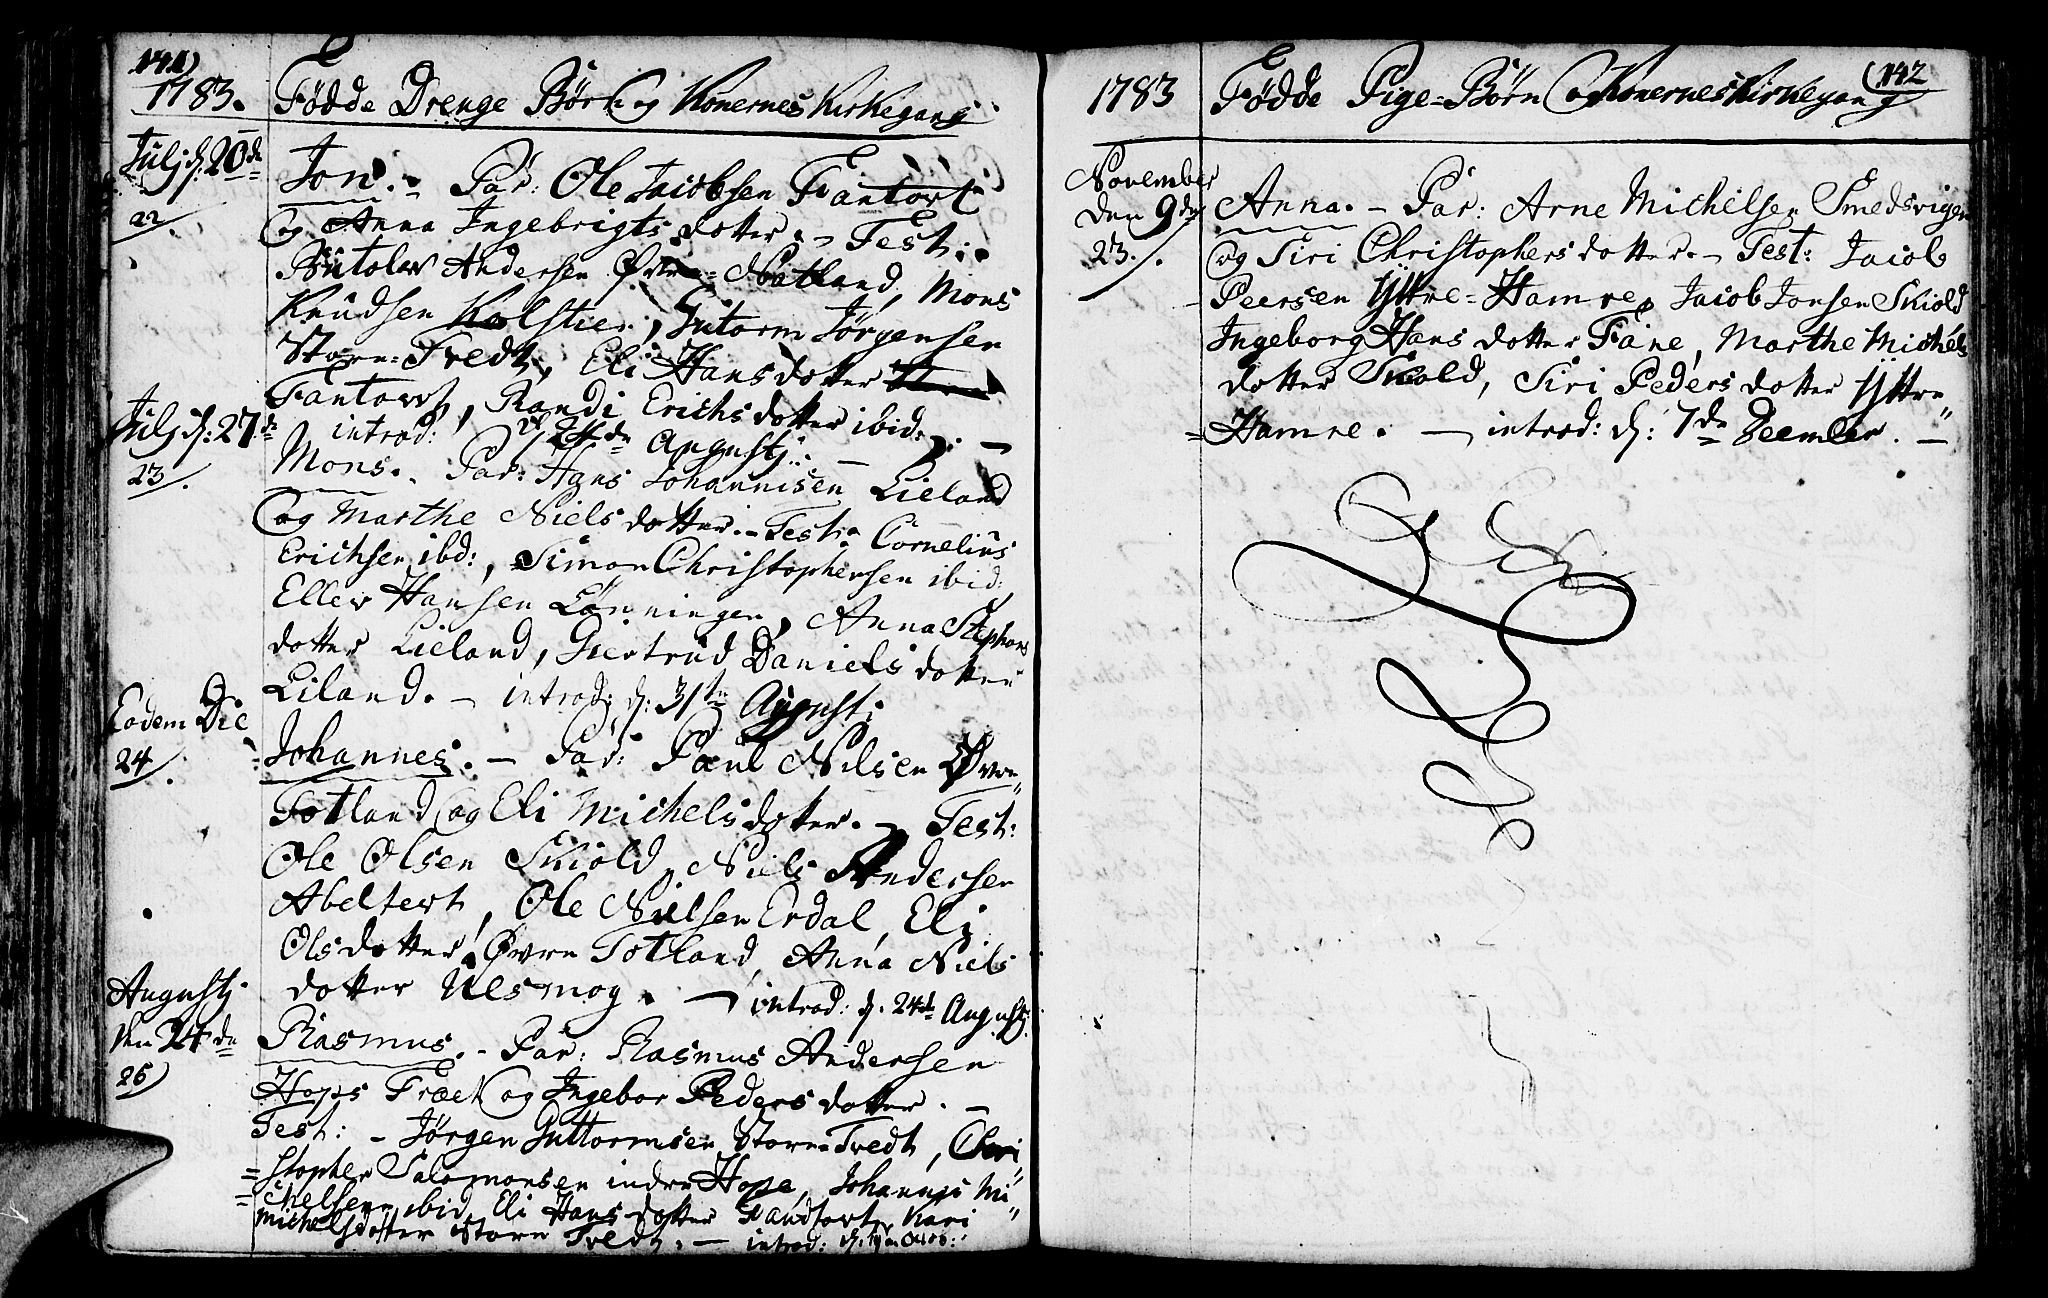 141)
1783. Födde Drenge Börn og Konernes Kirkegang
Julj d: 20de
22/.
Jon. – Par: Ole Jacobsen Fantoft
og Anna Ingebrigts dotter. – Test:
Botolev Andersen Øvre=Natland, Mons
Knudsen Kalstien, Gutorm Jörgensen
Store=Tvedt, Eli Hans dotter
Fantoft, Randi Erichs dotter ibid:
introd: d. 24de Augustj. –
Julj d: 27de
23/.
Mons. Par: Hans Johannisen Lieland
og Marthe Niels dotter. – Test: Cornelius
Erichsen ibd:, Simon Christophersen ibid:
Ellev Hansen Lönningen, Anna Stephens
dotter Lieland, Giertrud Daniels dotter
Liland. – introd: d: 31te Augusti
Eodem Die
24/.
Johannes. – Par: Poul Nilsen Øvre
Totland og Eli Michels dotter. – Test:
Ole Olsen Skiold, Niels Andersen
Abeltert, Ole Nielsen Erdal, Eli
Ols dotter Øvre Totland, Anna Niels
dotter Ulsmog. – introd: d. 24de Augusti
Augustj
den 24de
25)
Rasmus. – Par: Rasmus Andersen
Hops Træet og Ingebor Peders dotter. –
Test: – Jörgen Guttormsen Store=Tvedt, Chri
=stopher Salomonsen indre Hope, Johannes Mi
=chelsen ibid, Eli Hans dotter Fandtoft, Kari
Michelsdotter Store Tvedt. – introd: d:
1783 Födde Pige=Börn og Konernes Kirkegang (142
November
den 9de
23./.
Anna. – Par: Arne Michelsen Smedsvigen
og Siri Christophers dotter. – Test: Jacob
Peersen Yttre=Hamre, Jacob Jonsen Skiold
Ingeborg Hans dotter Fane, Marthe Michels
dotter Skiold, Siri Peders dotter Yttre
=Hamre. – introd: d: 7de Decmber. –